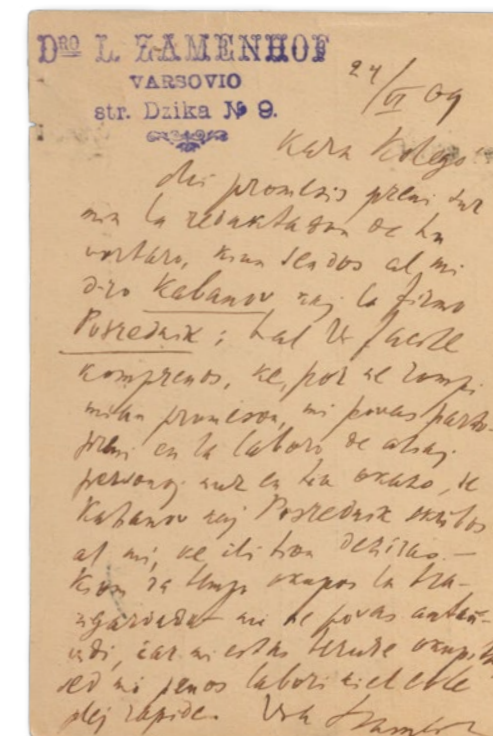 Dro L. ZAMENHOF
VARSOVIO
str. Dzika № 9.
24/VI 09
Kara Kolego!
Mi promesis preni sur
min la redaktadon de la
vortaro, kiun sendos al mi
d-ro Kabanov kaj la firmo
Posrednik; tial Vi facile
komprenos, ke, por ne rompi
mian promeson, mi povas parto-
preni en la laboro de aliaj
personoj nur en tia okazo, se
Kabanov kaj Posrednik skribos
al mi, ke ili tion deziras. —
Kiom da tempo okupos la tra-
rigardado mi ne povas antaŭ-
vidi, ĉar mi estas terure okupita
sed mi penos labori kiel eble
plej rapide. Via LZamenhof